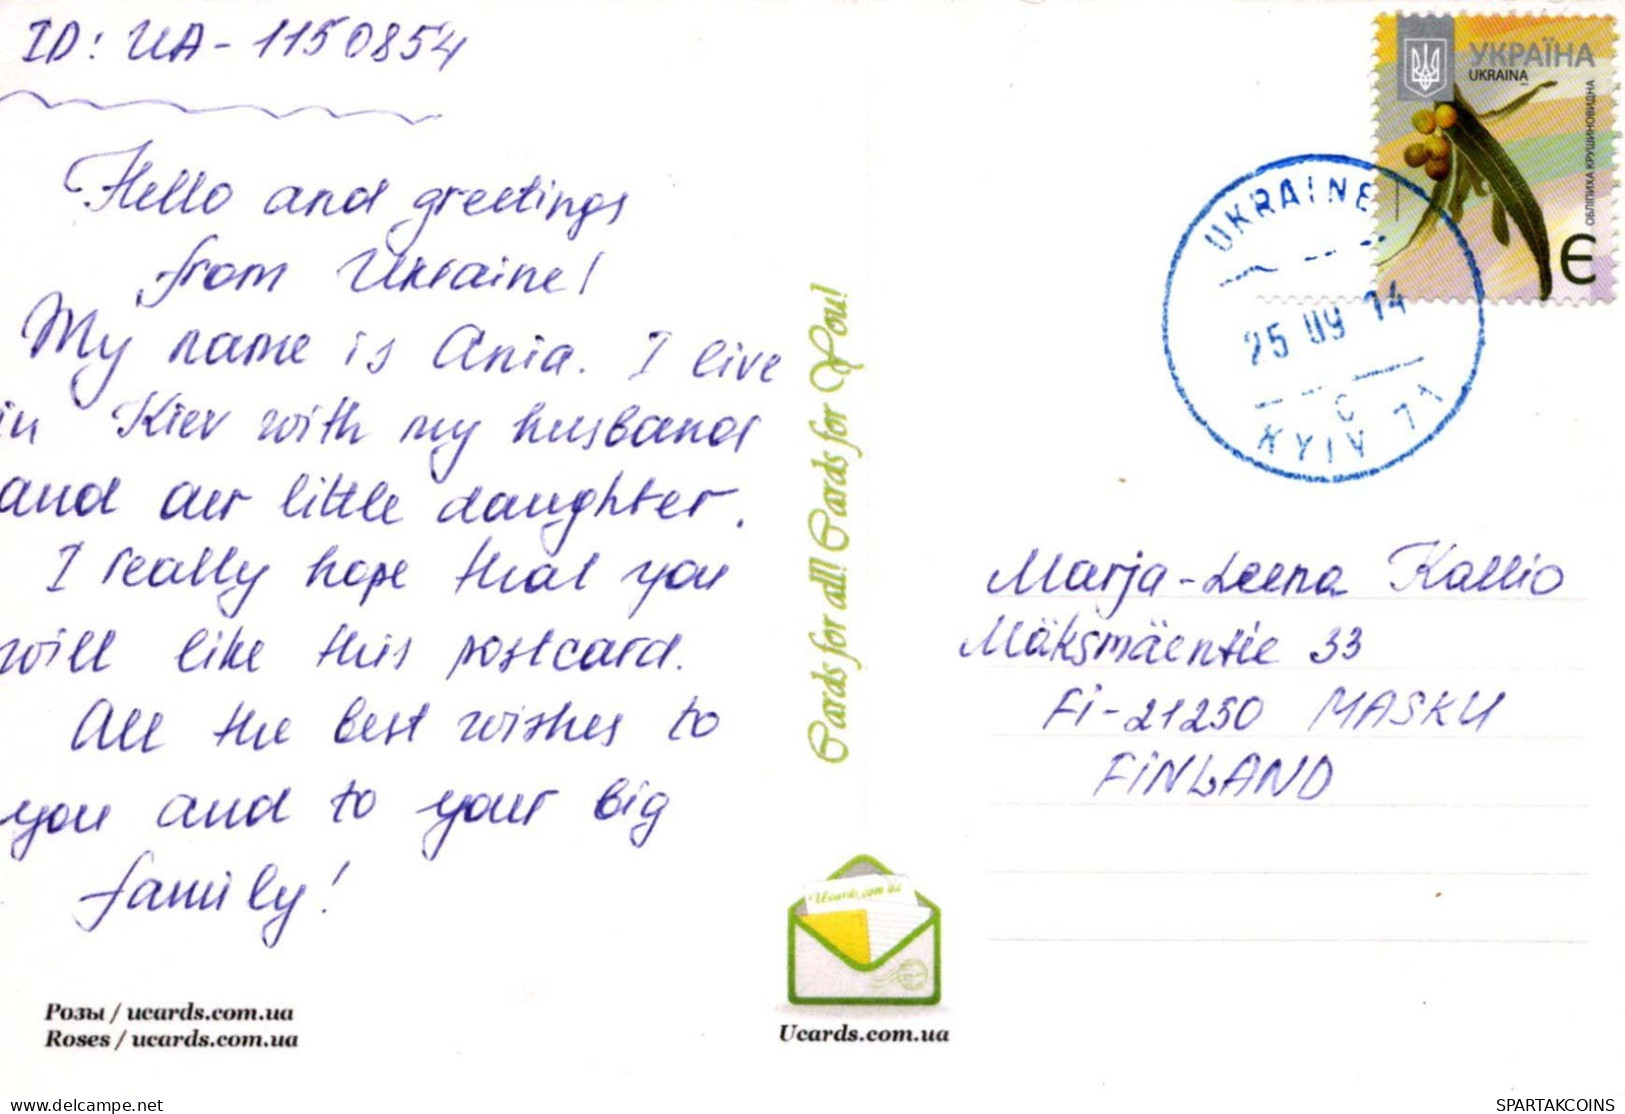 ID: UA-1150854
Hello and greetings
from Ukraine!
My name is Ania. I live
in Kiev with my husband
and our little daughter.
I really hope that you
will like this postcard.
All the best wishes to
you and to your big
family!
Розы / ucards.com.ua
Roses / ucards.com.ua
Cards for all! Cards for You!
Ucards.com.ua
Ucards.com.ua
УКРАЇНА
UKRAINA
ОБЛІПИХА КРУШИНОВИДНА
Є
UKRAINE
25 09 14
C
KYIV 71
Marja-Leena Kallio
Mäksmäentie 33
Fi-21250 MASKU
FiNLAND
delcampe.net
SPARTAKCOINS